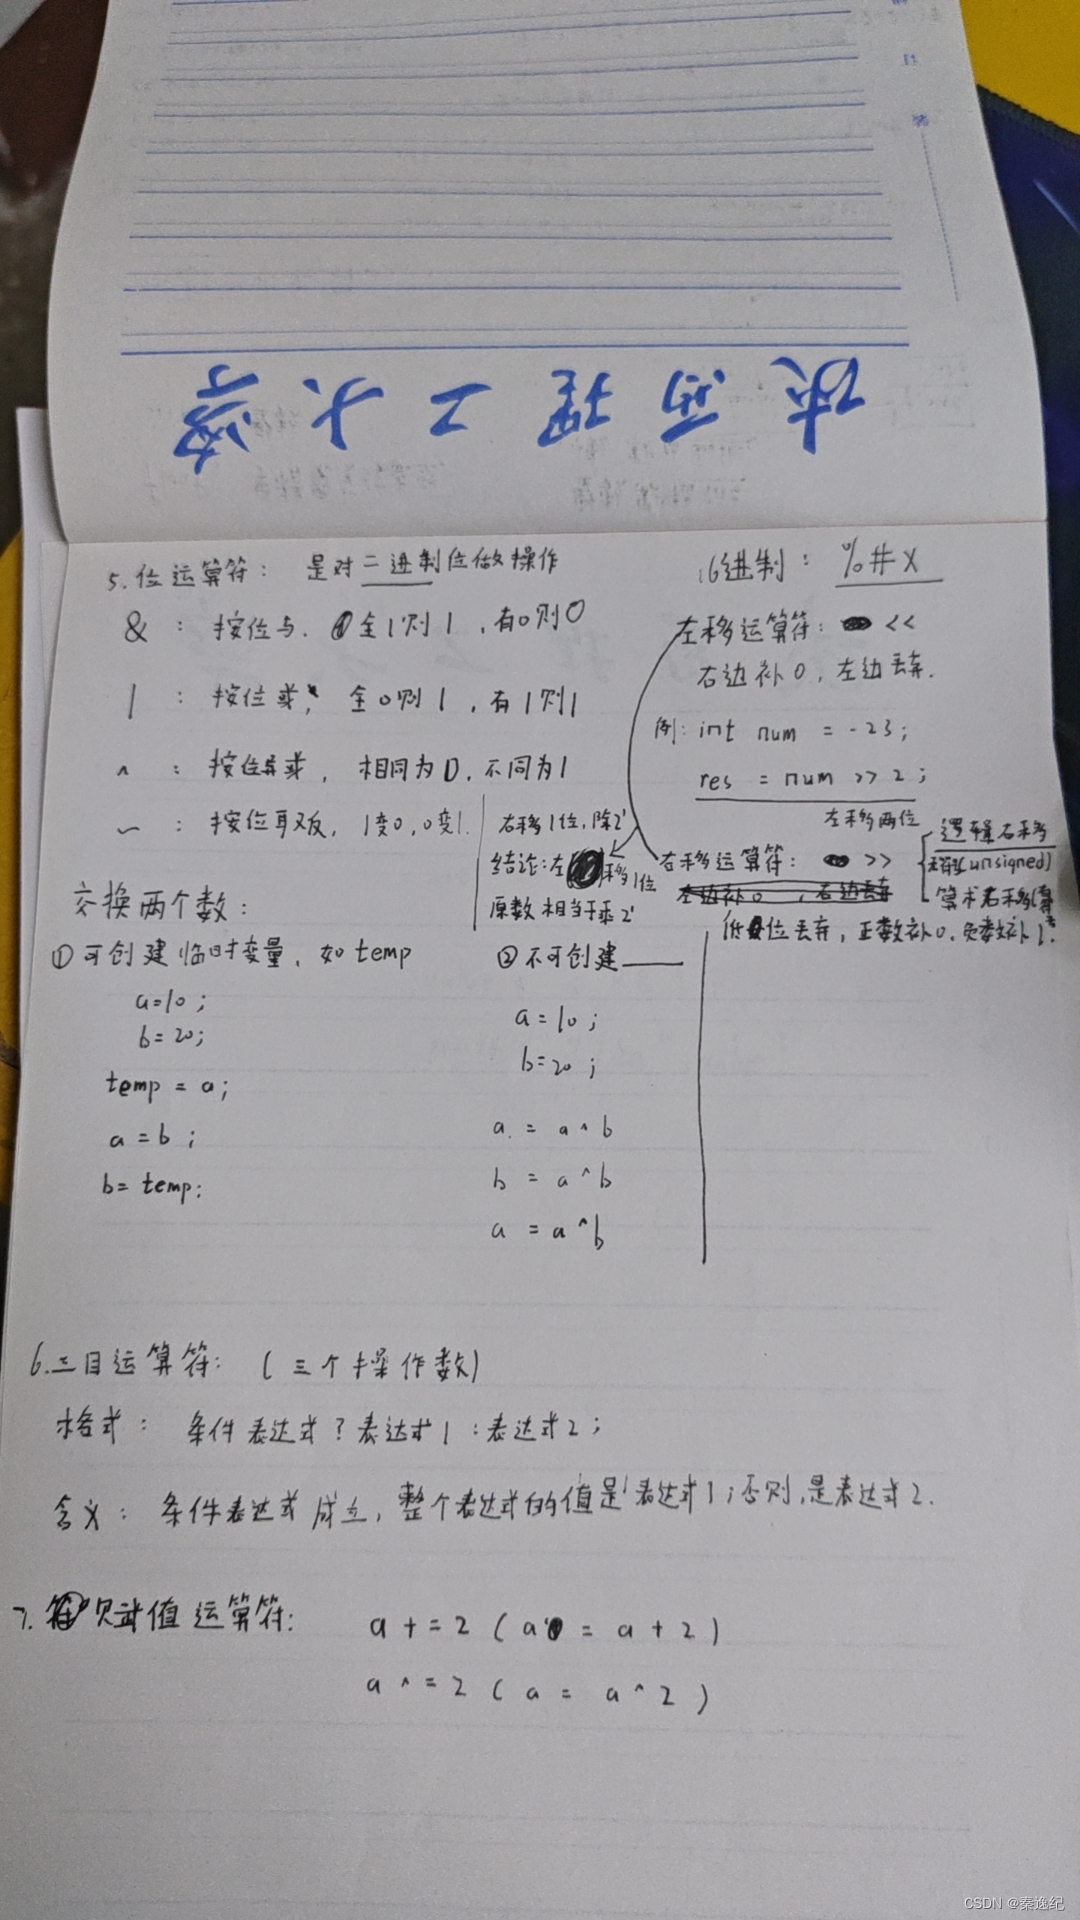 陕西理工大学
5.位运算符： 是对二进制位做操作
& ：按位与. 全1则1，有0则0
| ：按位或， 全0则1，有1则1
^ ：按位异或， 相同为0，不同为1
~ ：按位取反， 1变0，0变1.
16进制： %#x
左移运算符： <<
右边补0，左边丢弃.
例：int num = -23；
res = num >> 2；
左移两位
右移1位，除2¹
结论：左移1位
原数相当于乘2¹
右移运算符： >>
逻辑右移
(unsigned)
算术右移
左边补0 ，右边丢弃
低位丢弃，正数补0，负数补1.
交换两个数：
①可创建临时变量，如temp
a=10；
b=20；
temp = a；
a = b ；
b= temp；
②不可创建
a = 10 ；
b=20 ；
a = a ^ b
b = a ^ b
a = a ^ b
6.三目运算符： (三个操作数)
格式： 条件表达式？表达式1 ：表达式2；
含义： 条件表达式成立，整个表达式的值是表达式1；否则，是表达式2.
7. 赋值运算符：
a += 2 ( a = a + 2 )
a ^= 2 ( a = a ^ 2 )
CSDN @秦逸纪